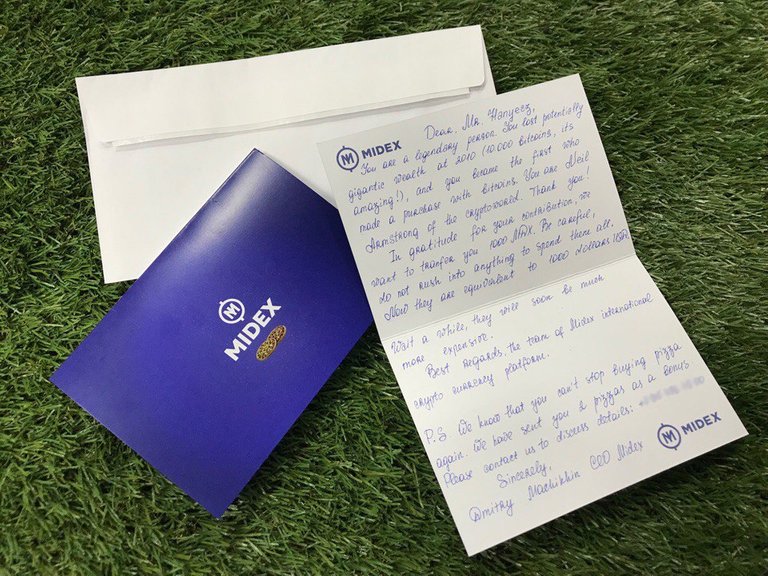 MIDEX
MIDEX
Dear, Mr. Hanyecz,
You are a legendary person. You lost potentially
gigantic wealth at 2010 (10.000 bitcoins, its
amazing!), and you became the first who
made a purchase with bitcoins. You are Neil
Armstrong of the cryptoworld. Thank you!
In gratitude for your contribution, we
want to tranfer you 1000 MDX. Be careful,
do not rush into anything to spend them all.
Now they are equivalent to 1000 dollars USA.
Wait a while, they will soon be much
more expensive.
Best regards, the team of Midex international
crypto currency platform.
P.S. We know that you can't stop buying pizza
again. We have sent you 2 pizzas as a bonus
Please contact us to discuss details:
Sincerely,
Dmitry Machikhin CEO Midex
MIDEX